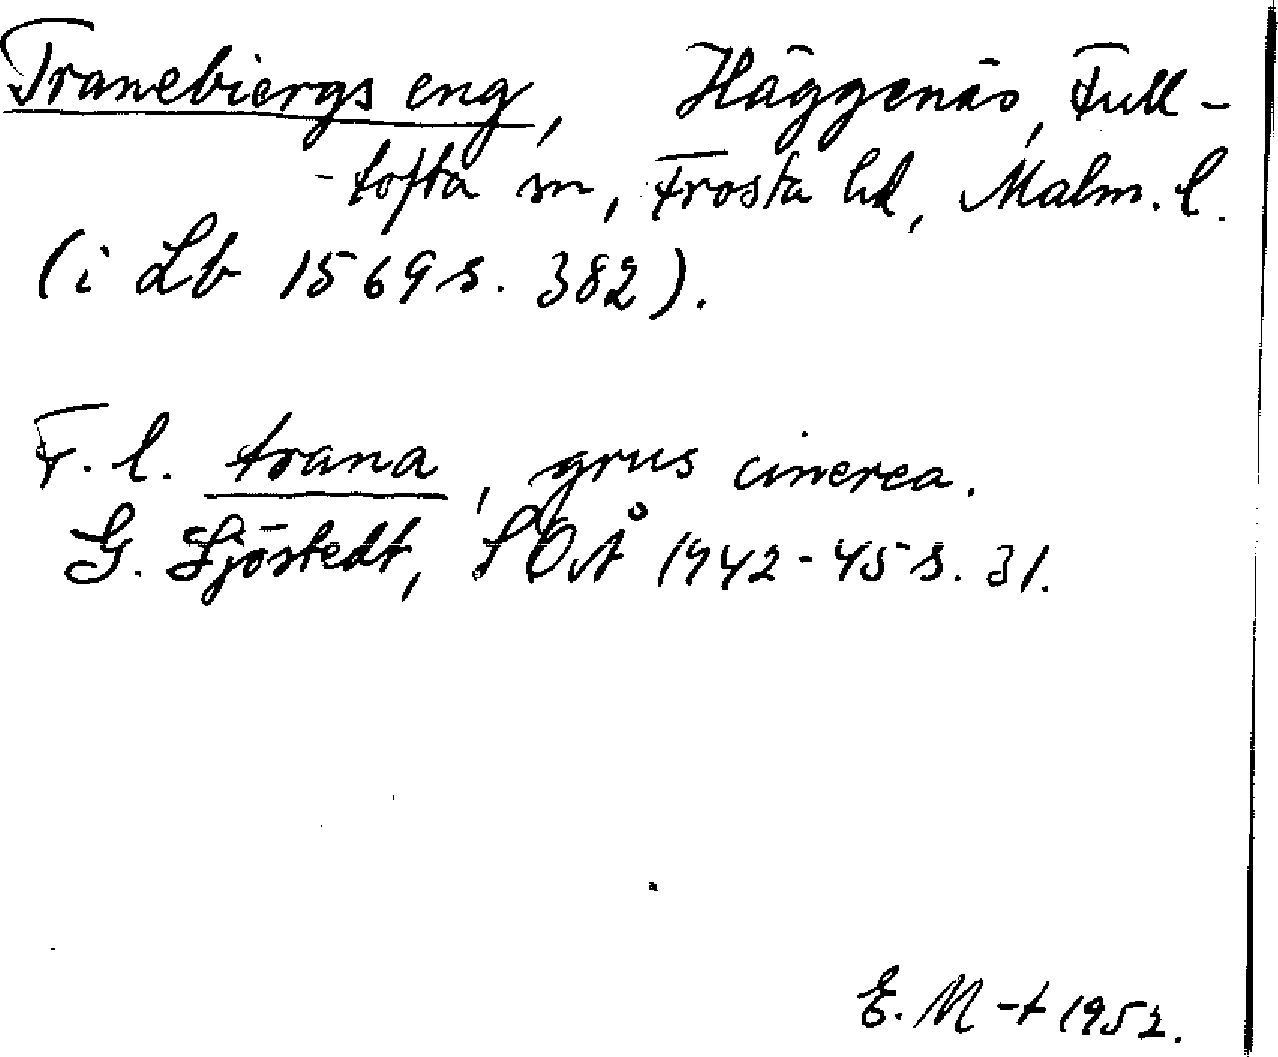 Tranebiergs eng, Häggenäs, Full-
-tofta sn, Frosta hd, Malm. l.
(i Lb 1569 s. 382).
F. l. trana, grus cinerea.
G. Sjöstedt, SOÅ 1942-45 s. 31.
E. M-t 1952.